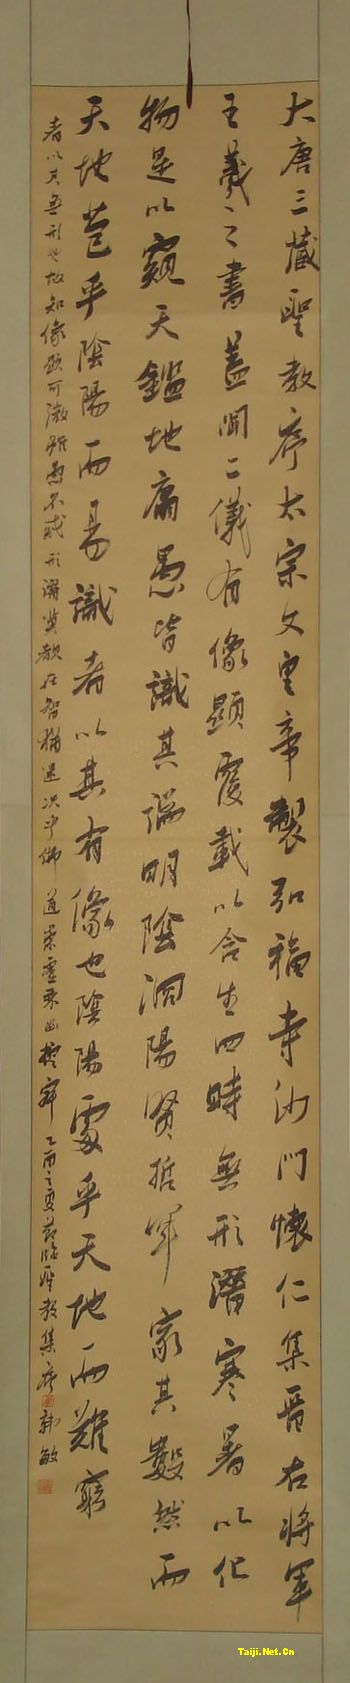 大唐三藏聖教序太宗文皇帝製弘福寺沙門懷仁集晉右將軍
王羲之書蓋聞二儀有像顯覆載以含生四時無形潛寒暑以化
物是以窺天鑑地庸愚皆識其端明陰洞陽賢哲罕窮其數然而
天地苞乎陰陽而易識者以其有像也陰陽處乎天地而難窮
者以其無形也故知像顯可徵雖愚不惑形潛莫覩在智猶迷況乎佛道崇虛乘幽控寂乙酉之夏節臨聖教集序韓敏
Taiji.Net.Cn